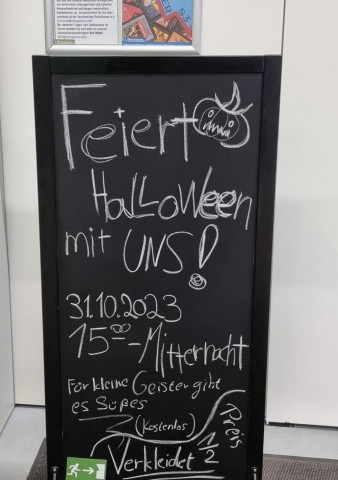 Feiert
Halloween
mit UNS!
31.10.2023
15⁰⁰-Mitternacht
Für kleine Geister gibt
es Süßes
(kostenlos)
Verkleidet 1/2
Preis